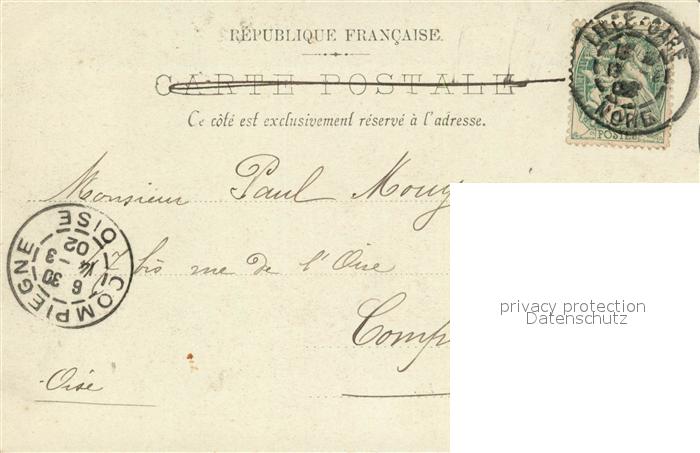 RÉPUBLIQUE FRANÇAISE.
CARTE POSTALE
Ce côté est exclusivement réservé à l'adresse.
LILLE-GARE
NORD
POSTES
Monsieur Paul Moug
17 bis rue de l'Oise
Comp
Oise
COMPIEGNE
OISE
6 30
14 - 3
02
privacy protection
Datenschutz